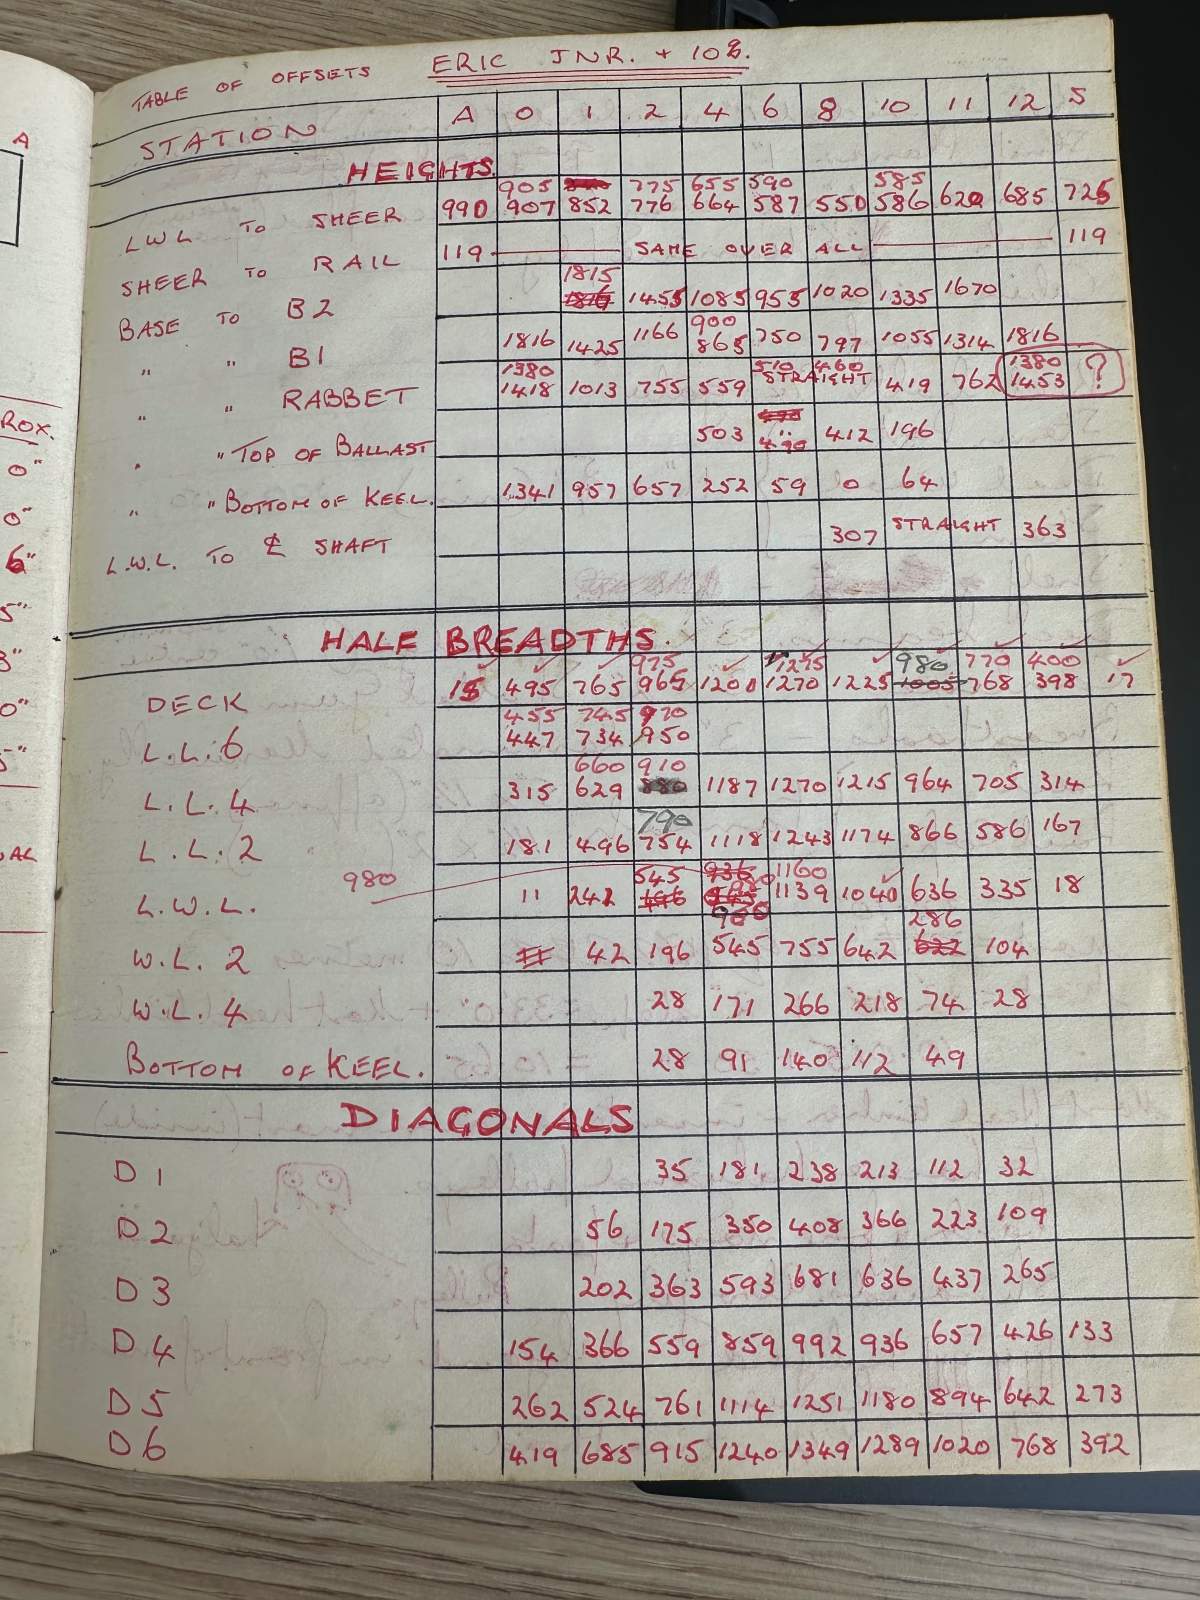 TABLE OF OFFSETS ERIC JNR. + 10%.
STATION A 0 1 2 4 6 8 10 11 12 S
HEIGHTS.
905 775 655 590 585
LWL TO SHEER 990 907 852 776 664 587 550 586 620 685 725
SHEER TO RAIL 119 SAME OVER ALL 119
1815
BASE TO B2 1455 1085 955 1020 1335 1670
900
" " B1 1816 1425 1166 865 750 797 1055 1314 1816
1380 510 460 1380
" " RABBET 1418 1013 755 559 STRAIGHT 419 762 1453 ?
" " TOP OF BALLAST 503 490 412 196
" " BOTTOM OF KEEL. 1341 957 657 252 59 0 64
L.W.L. TO ℄ SHAFT 307 STRAIGHT 363
HALF BREADTHS.
975 1275 980 770 400
DECK 15 495 765 965 1200 1270 1225 1005 768 398 17
455 745 970
L.L. 6 447 734 950
660 910
L.L. 4 315 629 880 1187 1270 1215 964 705 314
790
L.L. 2 181 496 754 1118 1243 1174 866 586 167
980 545 936 1160
L.W.L. 11 242 196 1139 1040 636 335 18
900 286
W.L. 2 42 196 545 755 642 622 104
W.L. 4 28 171 266 218 74 28
BOTTOM OF KEEL. 28 91 140 112 49
DIAGONALS
D1 35 181 238 213 112 32
D2 56 175 350 408 366 223 109
D3 202 363 593 681 636 437 265
D4 154 366 559 859 992 936 657 426 133
D5 262 524 761 1114 1251 1180 894 642 273
D6 419 685 915 1240 1349 1289 1020 768 392
A
ROX.
0"
0"
6"
5"
3"
0"
5"